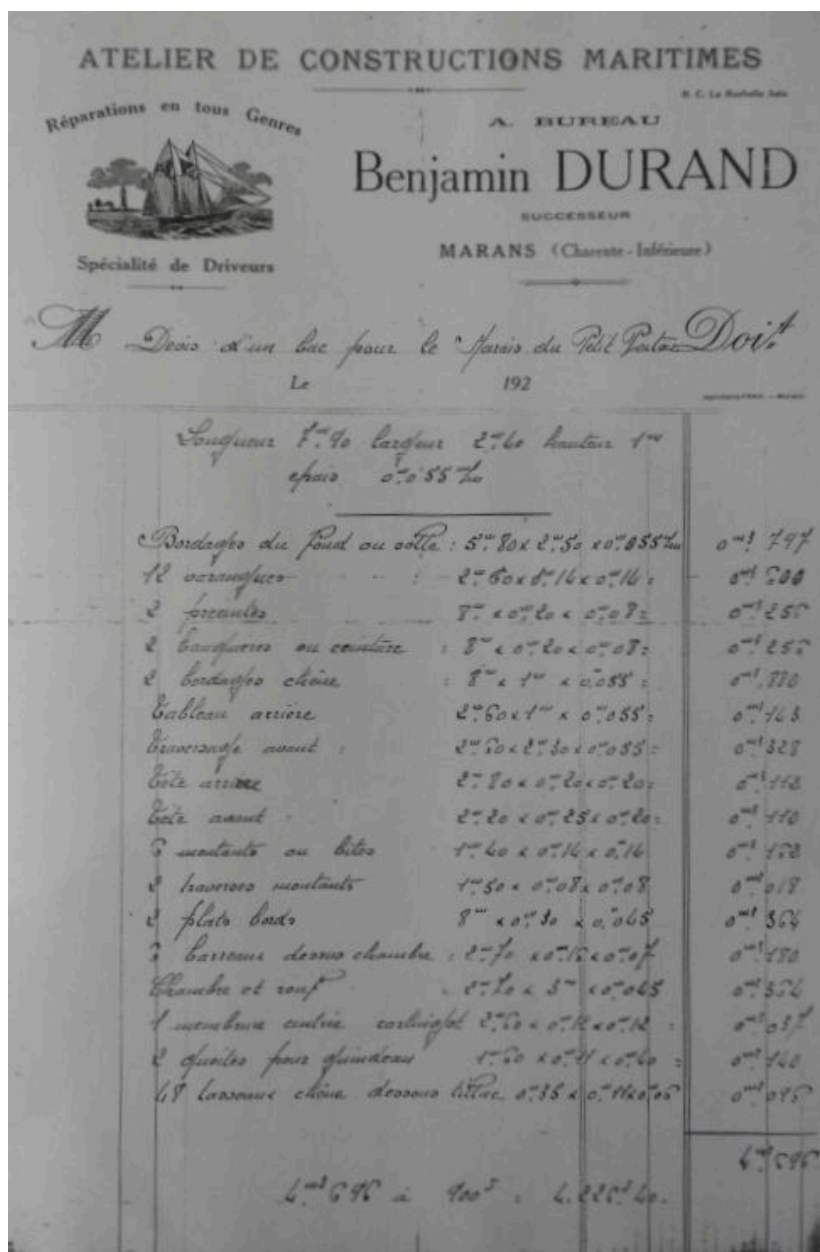 ATELIER DE CONSTRUCTIONS MARITIMES
R. C. La Rochelle
Réparations en tous Genres
A. BUREAU
Benjamin DURAND
SUCCESSEUR
MARANS (Charente-Inférieure)
Spécialité de Driveurs
M Devis d'un bac pour le Marais du Petit Doit
Le 192
Longueur 7m90 largeur 2m60 hauteur 1m
epais 0m055
Bordages du fond ou solle : 5m80 x 2m50 x 0m055 0m3 797
12 varangues : 2m60 x 0m14 x 0m14 = 0m3 600
2 preceintes 8m x 0m20 x 0m08 = 0m3 256
2 bauquieres ou ceinture : 8m x 0m20 x 0m08 = 0m3 256
2 bordages chêne : 8m x 1m x 0m055 = 0m3 880
Tableau arrière 2m60 x 1m x 0m055 = 0m3 143
Traversage avant : 2m60 x 2m30 x 0m055 = 0m3 328
Tête arrière 2m80 x 0m20 x 0m20 = 0m3 112
Tête avant : 2m20 x 0m25 x 0m20 = 0m3 110
6 montants ou bites 1m40 x 0m14 x 0m14 0m3 162
2 traverses montants 1m50 x 0m08 x 0m08 0m3 018
2 plats bords 8m x 0m30 x 0m045
barreaux dessus chambre : 2m70 x x 0m07 0m3 180
Chambre et rouf 2m70 x 3m x 0m045 0m3 364
1 membrure centrée 2m60 x 0m12 x 0m12 = 0m3 037
2 pour guindeau 1m60 x 0m11 x 0m40 = 0m3 140
48 tasseaux chêne dessous tillac 0m35 x 0m11 x 0m05 0m3
4m3 696
4m3 696 à 900f = 4.226f40.